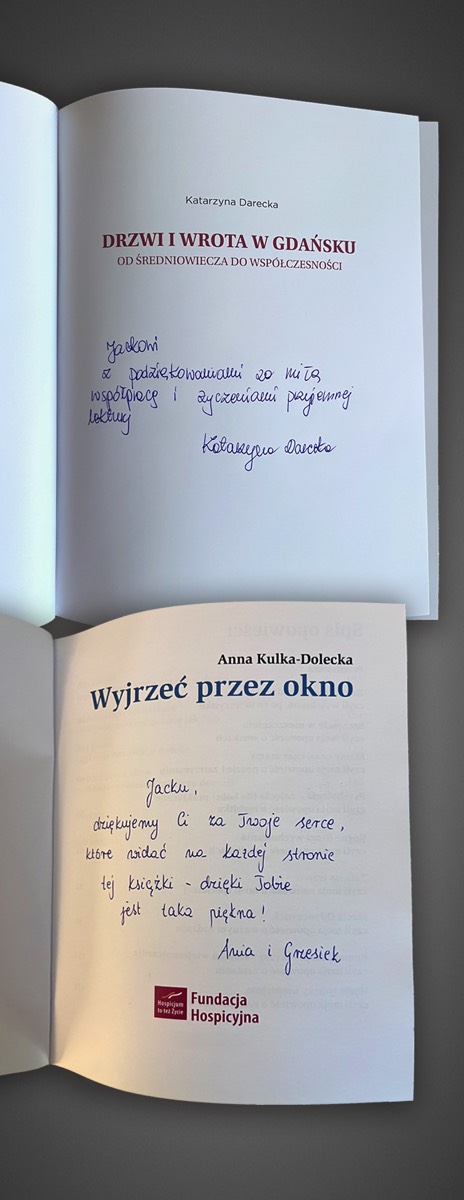 Katarzyna Darecka
DRZWI I WROTA W GDAŃSKU
OD ŚREDNIOWIECZA DO WSPÓŁCZESNOŚCI
Jackowi
z podziękowaniami za miłą
współpracę i życzeniami przyjemnej
lektury
Katarzyna Darecka
Anna Kulka-Dolecka
Wyjrzeć przez okno
Jacku,
dziękujemy Ci za Twoje serce,
które widać na każdej stronie
tej książki - dzięki Tobie
jest taka piękna!
Ania i Grzesiek
Hospicjum
to też Życie
Fundacja
Hospicyjna